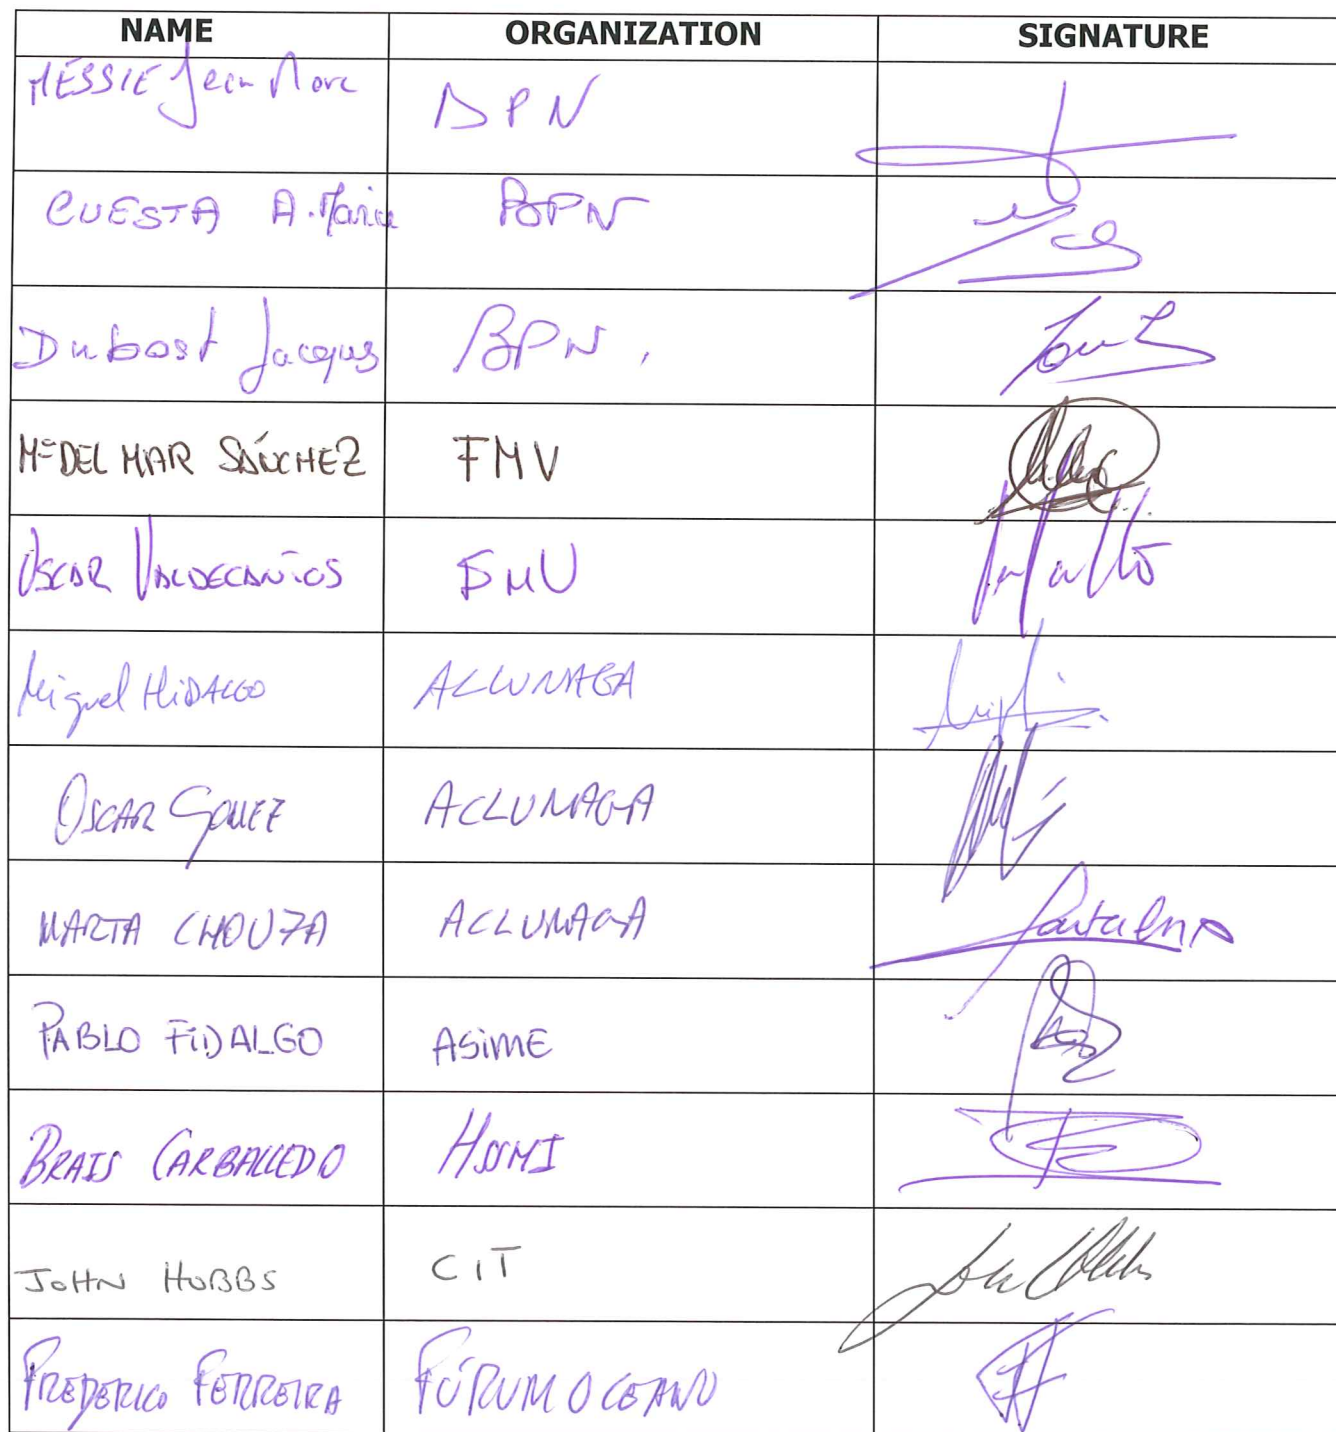 NAME ORGANIZATION SIGNATURE
MESSIE Jean Marc BPN
CUESTA A. Maria BPN
Dubost Jacques BPN.
Mª DEL MAR SÁNCHEZ FMV
OSCAR VALDECANTOS FMV
Miguel HiDALGO ACLUNAGA
OSCAR GOMEZ ACLUNAGA
MARTA CHOUZA ACLUNAGA
PABLO FiDALGO ASiME
BRAIS CARBALLEDO
JOHN HOBBS CIT
FREDERICO FERREIRA FÓRUM OCEANO